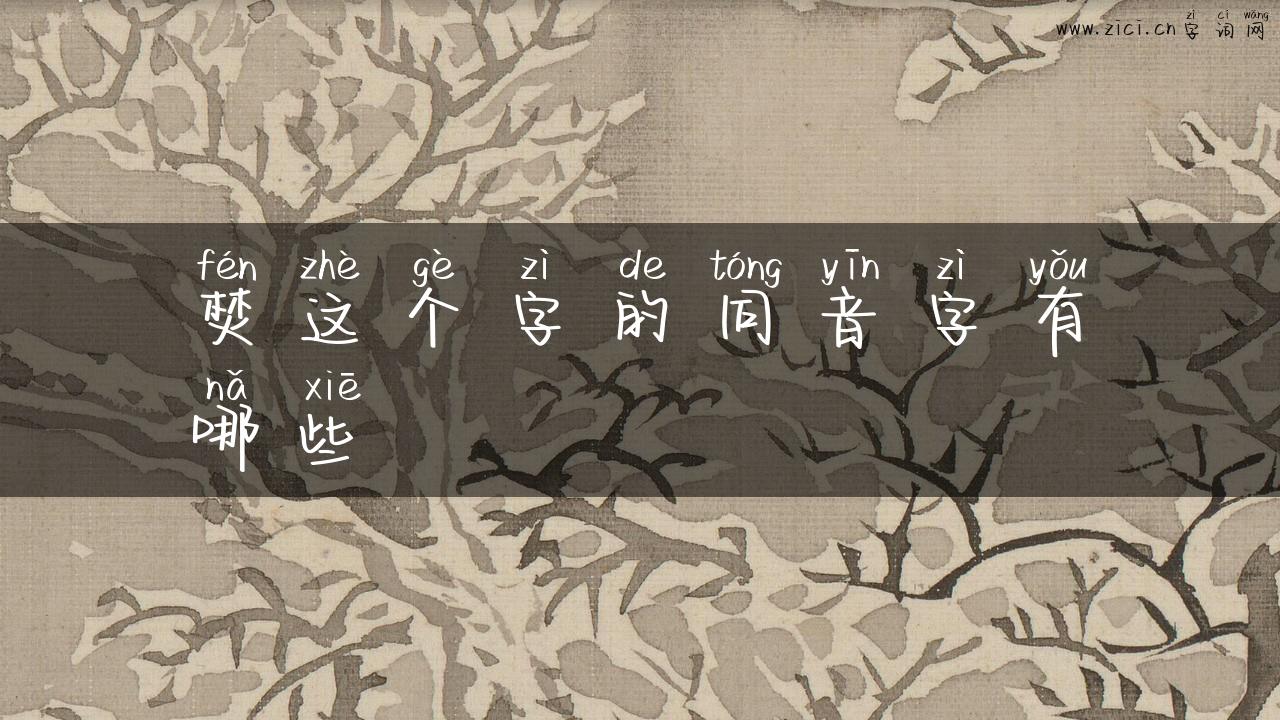 zì cí wǎng
www.zici.cn 字词网
fén zhè gè zì de tóng yīn zì yǒu
焚这个字的同音字有
nǎ xiē
哪些